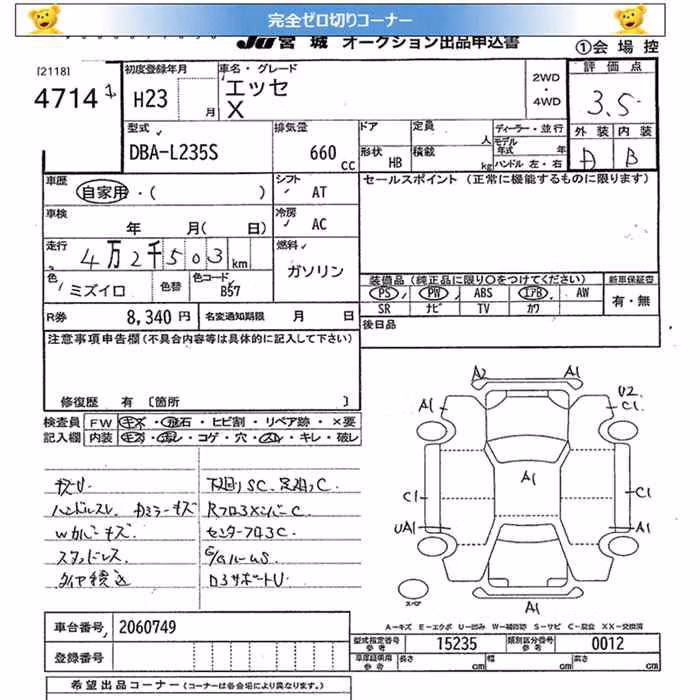 完全ゼロ切りコーナー
JU宮城 オークション出品申込書 ①会場控
[2118]
4714
初度登録年月 H23 月
車名・グレード エッセ X
2WD・4WD
評価点 3.5
型式 DBA-L235S
排気量 660 cc
ドア 定員 人
形状 HB 積載 kg
ディーラー・並行
モデル年式 年
ハンドル 左・右
外装 内装
D B
車歴 自家用・( )
シフト AT
セールスポイント (正常に機能するものに限ります)
車検 年 月( 日)
冷房 AC
走行 4万2千503km
燃料 ガソリン
色 ミズイロ 色替 色コード B57
装備品 (純正品に限り○をつけてください) 新車保証書
PS PW ABS エアB AW 有・無
SR ナビ TV カワ
R券 8,340円 名変通知期限 月 日
後日品
注意事項申告欄(不具合内容等は具体的に記入して下さい)
修復歴 有 [箇所 ]
検査員 FW キズ・飛石・ヒビ割・リペア跡・×要
記入欄 内装 キズ・汚レ・コゲ・穴・スレ・キレ・破レ
A2 A1
A1 U2 C1
A1
C1 C1
UA1 A1
A1
スペア
下廻りSC、足廻りC
ハンドルスレ カラミラーキズ Rフロアメンバーc
Wカバーキズ センターフロアC
スタッドレス G/GルームS
タイヤ積込 ロアサポートU
A-キズ E-エクボ U-凹み W-補修跡 S-サビ C-腐食 XX-交換済
車台番号 2060749
型式指定番号 15235 類別区分番号 0012
登録番号
長さ cm 幅 cm 高さ cm
希望出品コーナー (コーナーは各会場により異なります。)